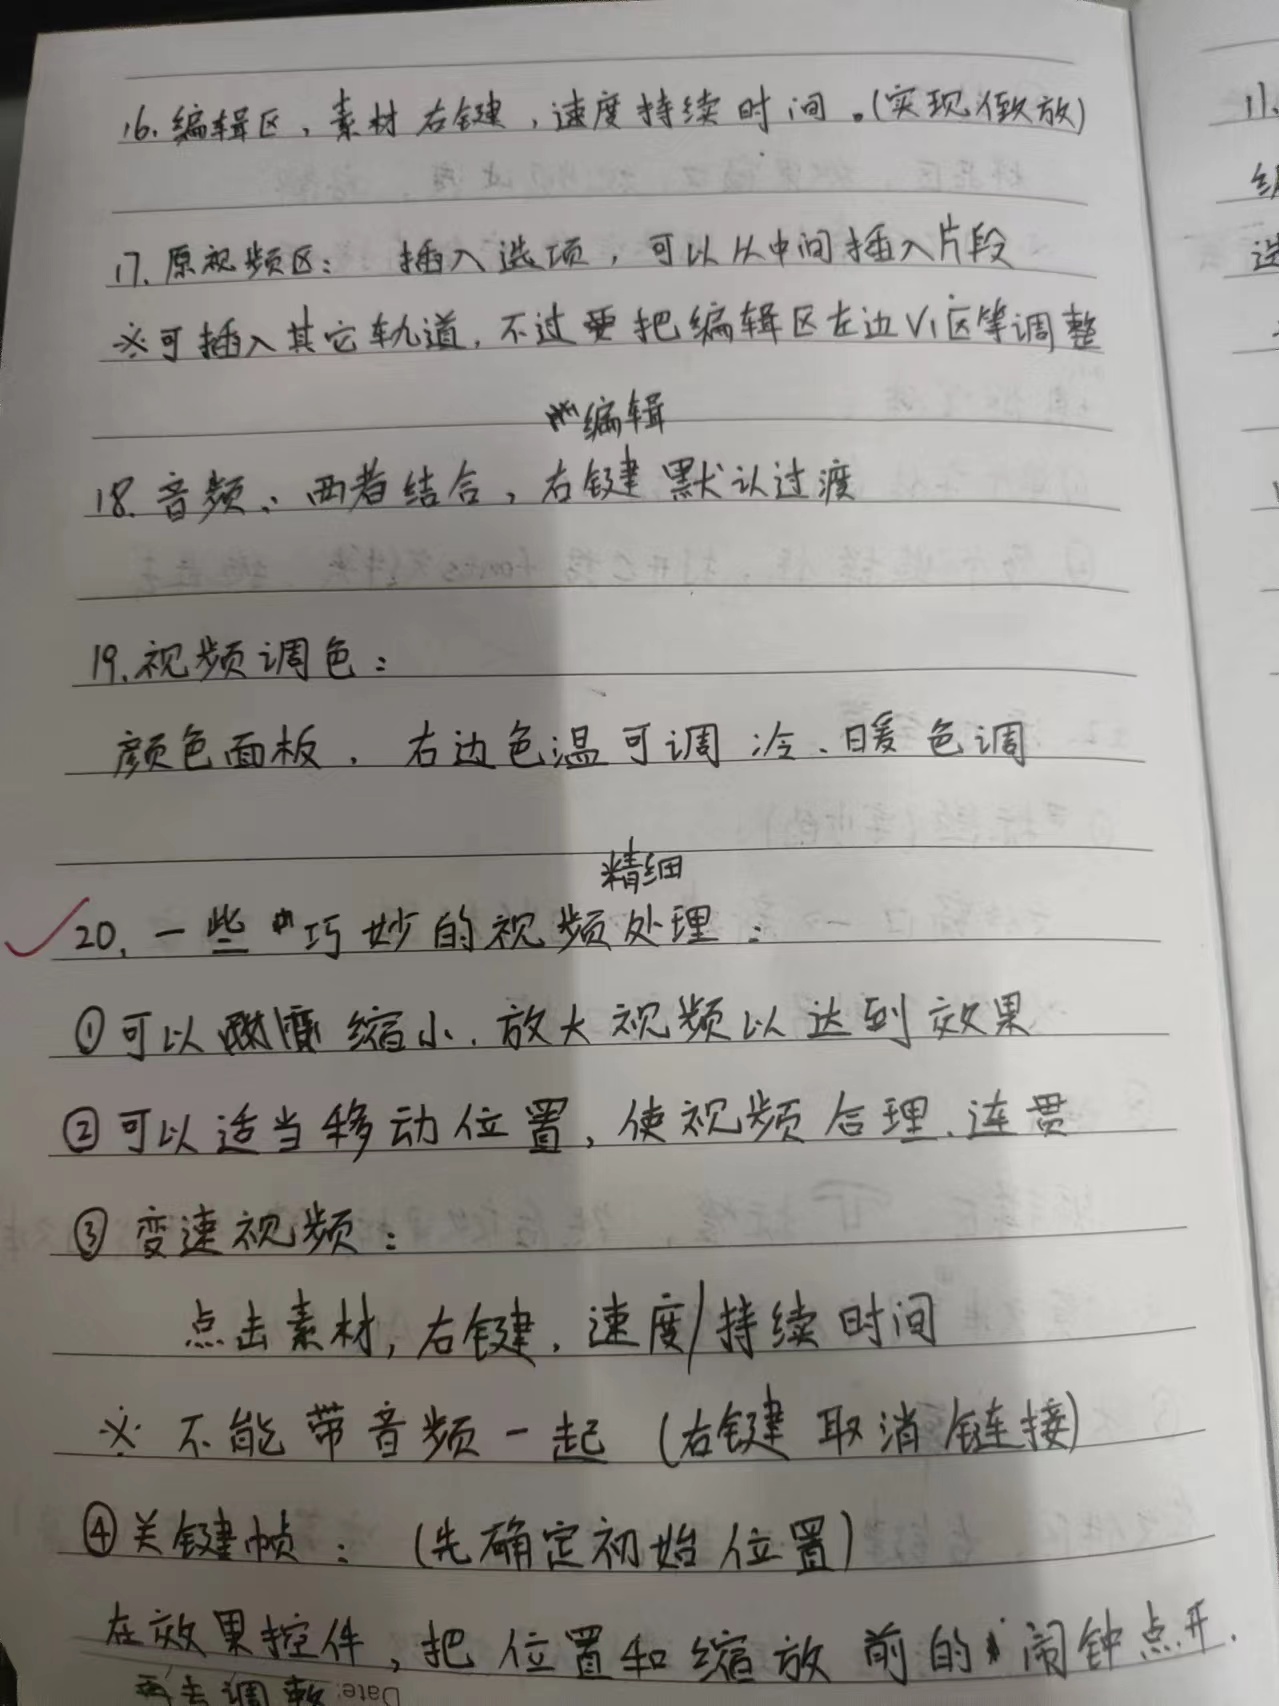 16.编辑区，素材右键，速度持续时间。(实现倒放)
17.原视频区：插入选项，可以从中间插入片段
※可插入其它轨道，不过要把编辑区左边V1区等调整
编辑
18.音频、两者结合，右键默认过渡
19.视频调色：
颜色面板，右边色温可调冷、暖色调
精细
20.一些巧妙的视频处理：
①可以缩小、放大视频以达到效果
②可以适当移动位置，使视频合理、连贯
③变速视频：
点击素材，右键，速度/持续时间
※不能带音频一起(右键取消链接)
④关键帧：(先确定初始位置)
在效果控件，把位置和缩放前的闹钟点开.
再去调整
Date:
11.